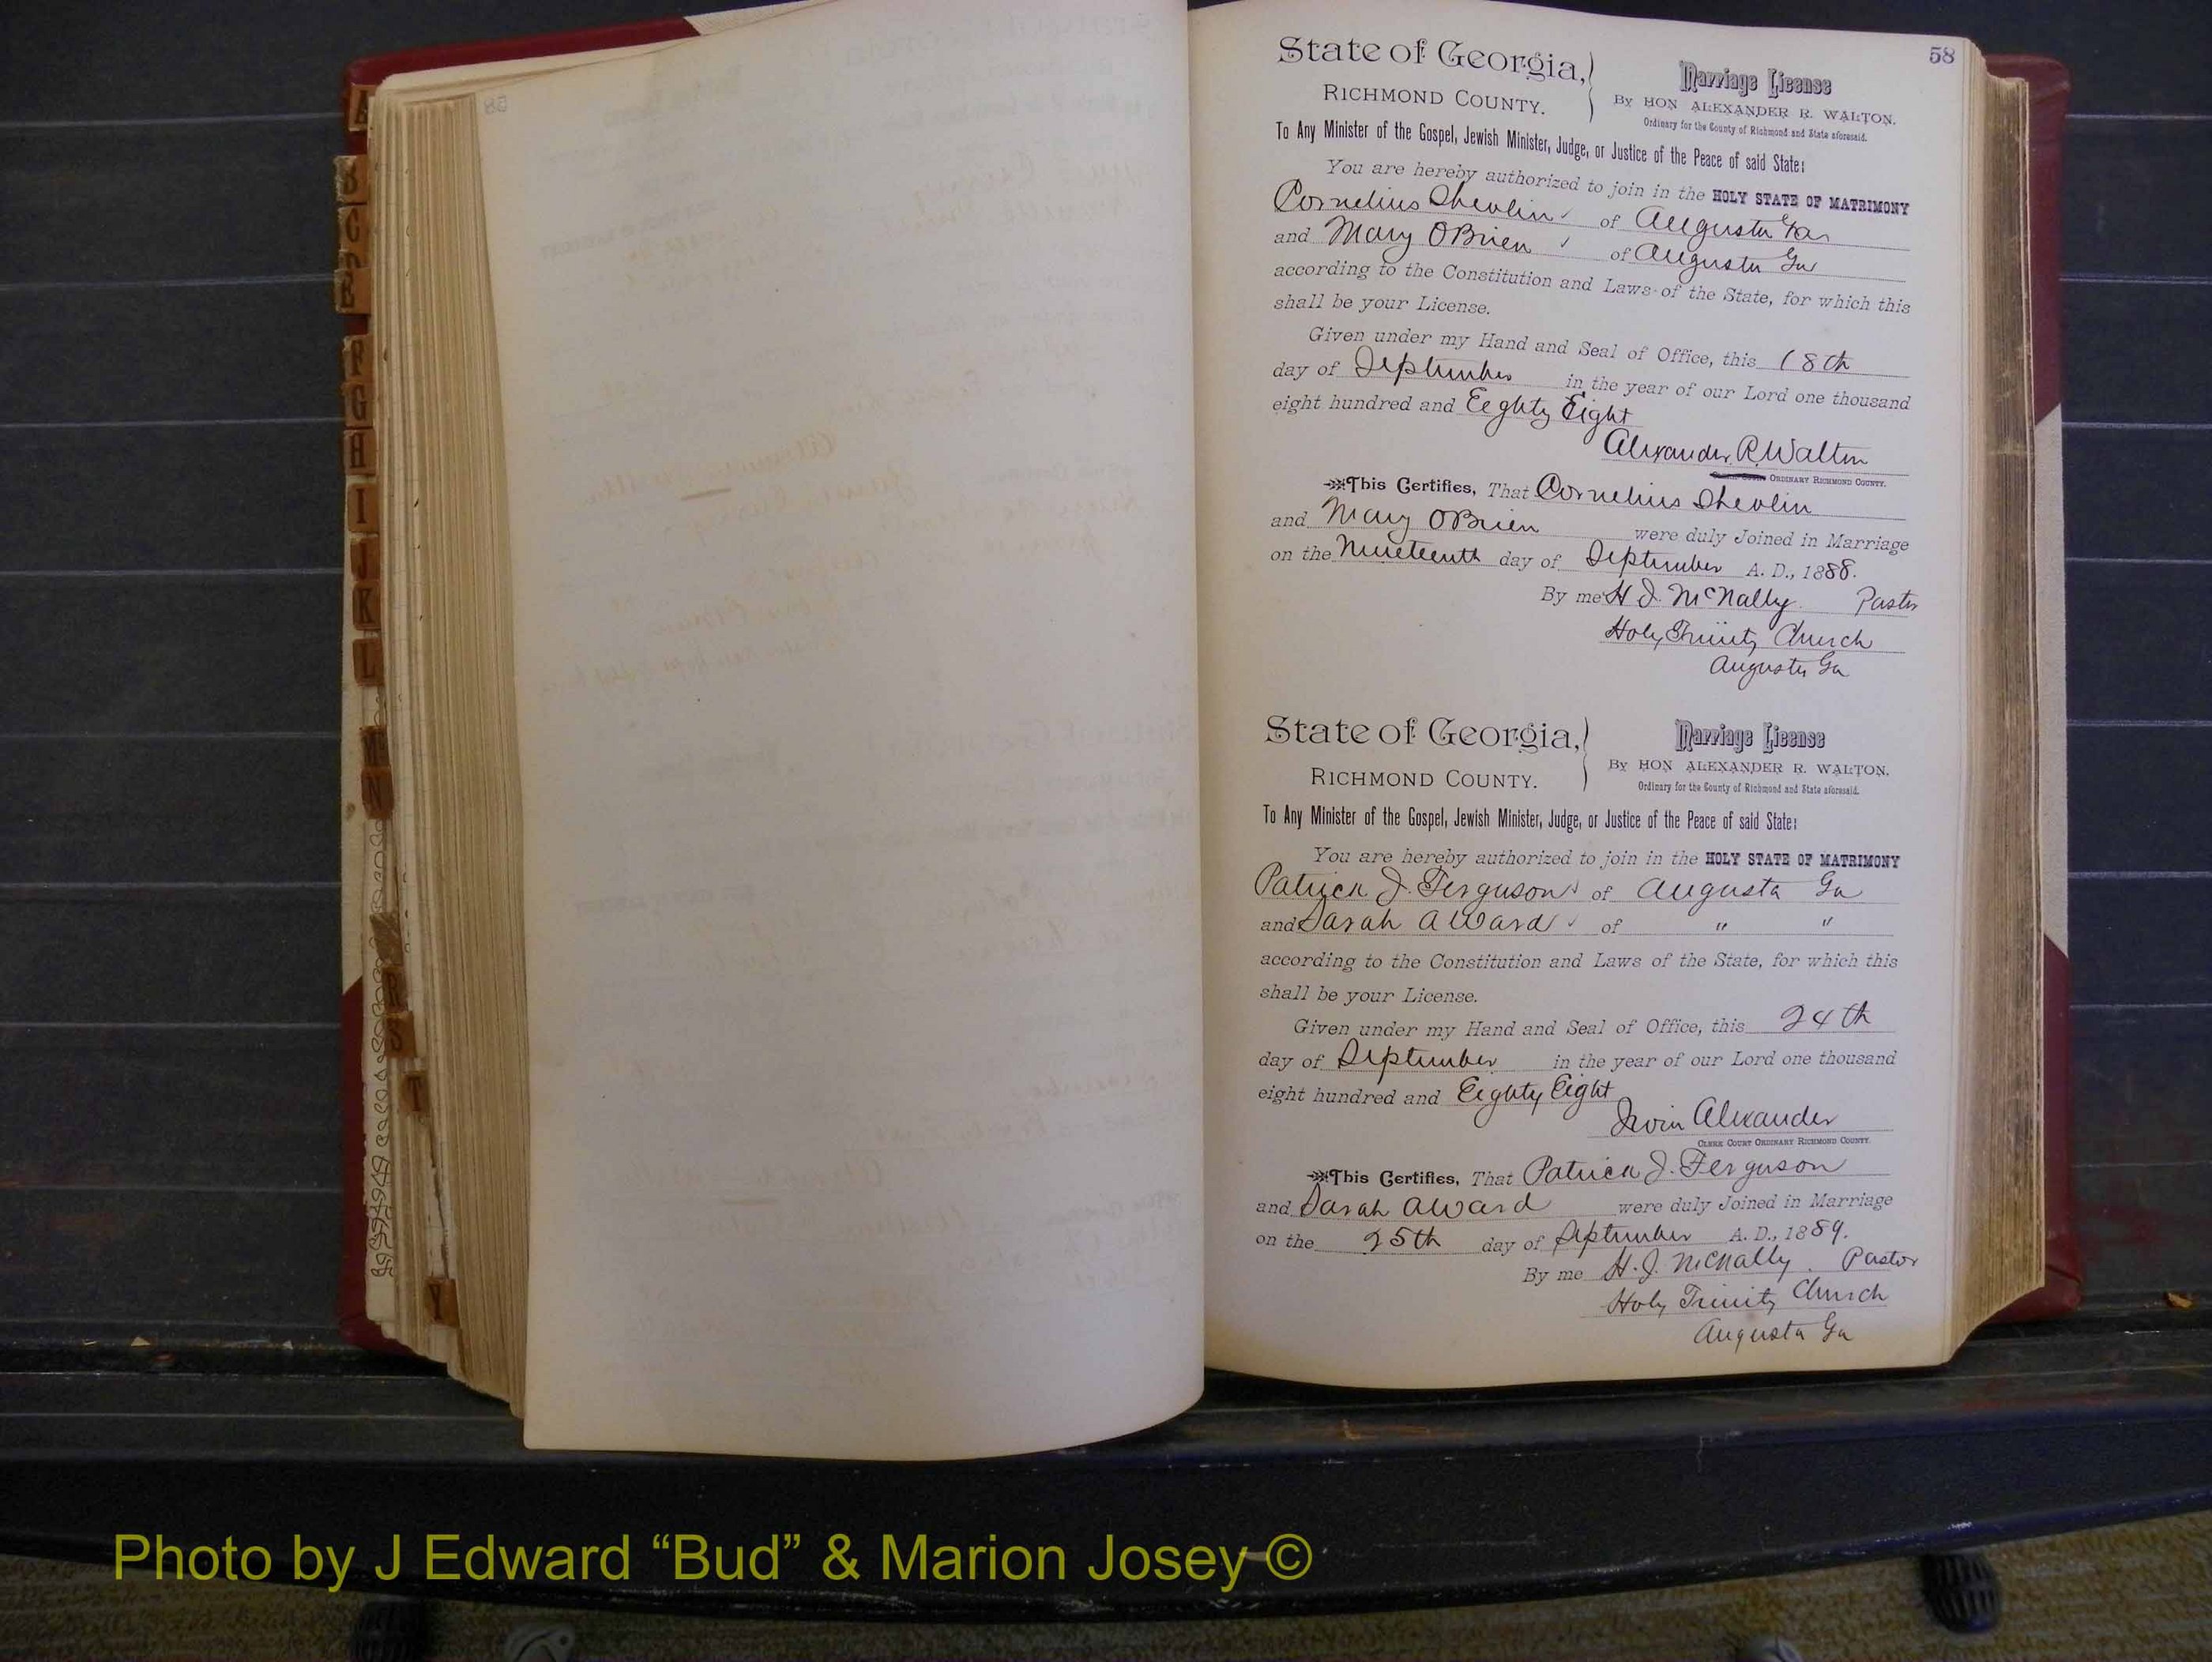 58
State of Georgia,
RICHMOND COUNTY.
Marriage License
By HON ALEXANDER R. WALTON.
Ordinary for the County of Richmond and State aforesaid.
To Any Minister of the Gospel, Jewish Minister, Judge, or Justice of the Peace of said State:
You are hereby authorized to join in the HOLY STATE OF MATRIMONY
Cornelius Shevlin of Augusta Ga
and Mary OBrien of Augusta Ga
according to the Constitution and Laws of the State, for which this
shall be your License.
Given under my Hand and Seal of Office, this 18th
day of September in the year of our Lord one thousand
eight hundred and Eeghty Eight
Alexander R. Walton
ORDINARY RICHMOND COUNTY.
This Certifies, That Cornelius Shevlin
and Mary OBrien were duly Joined in Marriage
on the Nineteenth day of September A. D., 1888.
By me H J. McNally. Pastor
Holy Trinity Church
Augusta Ga
State of Georgia,
RICHMOND COUNTY.
Marriage License
By HON ALEXANDER R. WALTON.
Ordinary for the County of Richmond and State aforesaid.
To Any Minister of the Gospel, Jewish Minister, Judge, or Justice of the Peace of said State:
You are hereby authorized to join in the HOLY STATE OF MATRIMONY
Patrick J. Ferguson of Augusta Ga
and Sarah A Ward of " "
according to the Constitution and Laws of the State, for which this
shall be your License.
Given under my Hand and Seal of Office, this 24th
day of September in the year of our Lord one thousand
eight hundred and Eighty Eight
Irvin Alexander
CLERK COURT ORDINARY RICHMOND COUNTY.
This Certifies, That Patrick J. Ferguson
and Sarah A Ward were duly Joined in Marriage
on the 25th day of September A. D., 1889.
By me H. J. McNally. Pastor
Holy Trinity Church
Augusta Ga
A
B
C
D
E
F
G
H
I
J
K
L
M
N
R
S
T
Y
Photo by J Edward “Bud” & Marion Josey ©